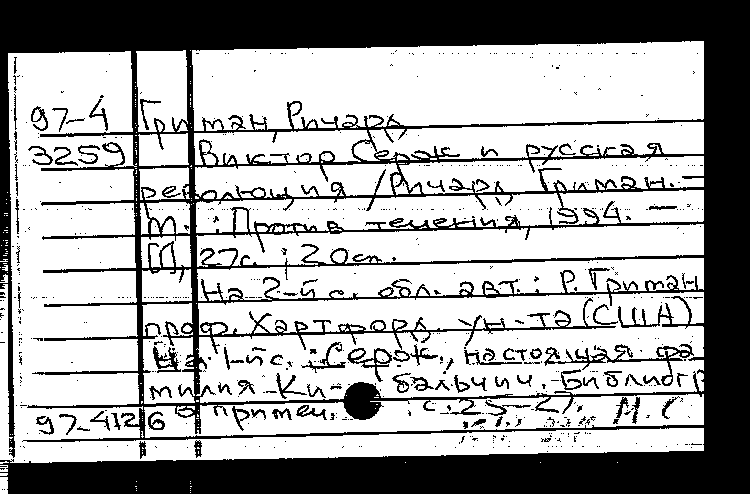 97-4 Гриман, Ричард
3259 Виктор Серж и русская
революция / Ричард Гриман. —
М. : Против течения, 1994. —
[1], 27с. ; 20см.
На 2-й с. обл. авт.: Р. Гриман
проф. Хартфорд. ун-та (США)
На 1-й с. : Серж, настоящая фа
милия Ки- бальчич. Библиогр
97-4126 в примеч. : с. 25-27. М. С